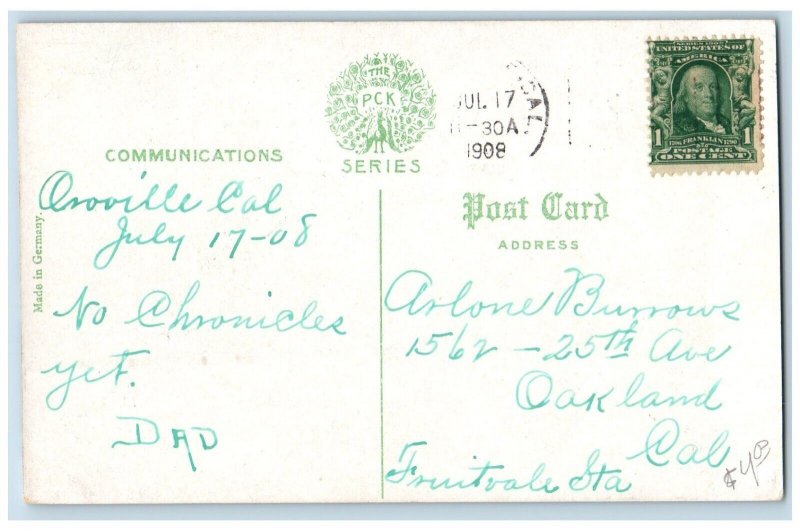 THE
PCK
SERIES
COMMUNICATIONS
Made in Germany.
Oroville Cal
July 17-08
No Chronicles
yet.
DAD
CAL.
JUL 17
11-30A
1908
SERIES 1902
UNITED STATES OF
AMERICA
1 1
1706 FRANKLIN 1790
POSTAGE
ONE CENT
Post Card
ADDRESS
Arlone Burrows
1562 - 25th Ave
Oakland
Cal
Fruitvale Sta
$4.00